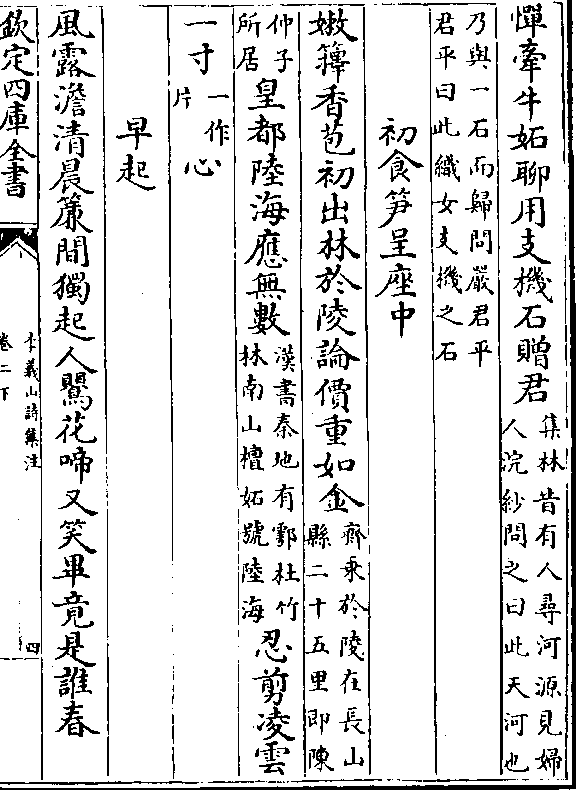 憚牽牛妬聊用支機石贈君集林昔有人尋河源見婦人浣紗問之曰此天河也
乃與一石而歸問嚴君平君平曰此織女支機之石
初食笋呈座中
嫰籜香苞初出林於陵論價重如金齊乘於陵在長山縣二十五里即陳
仲子所居皇都陸海應無數漢書秦地有鄠杜竹林南山檀妬號陸海忍剪凌雲
一寸一作片心
早起
風露澹清晨簾間獨起人鸎花啼又笑畢竟是誰春
欽定四庫全書
李義山詩集注
卷二下
四